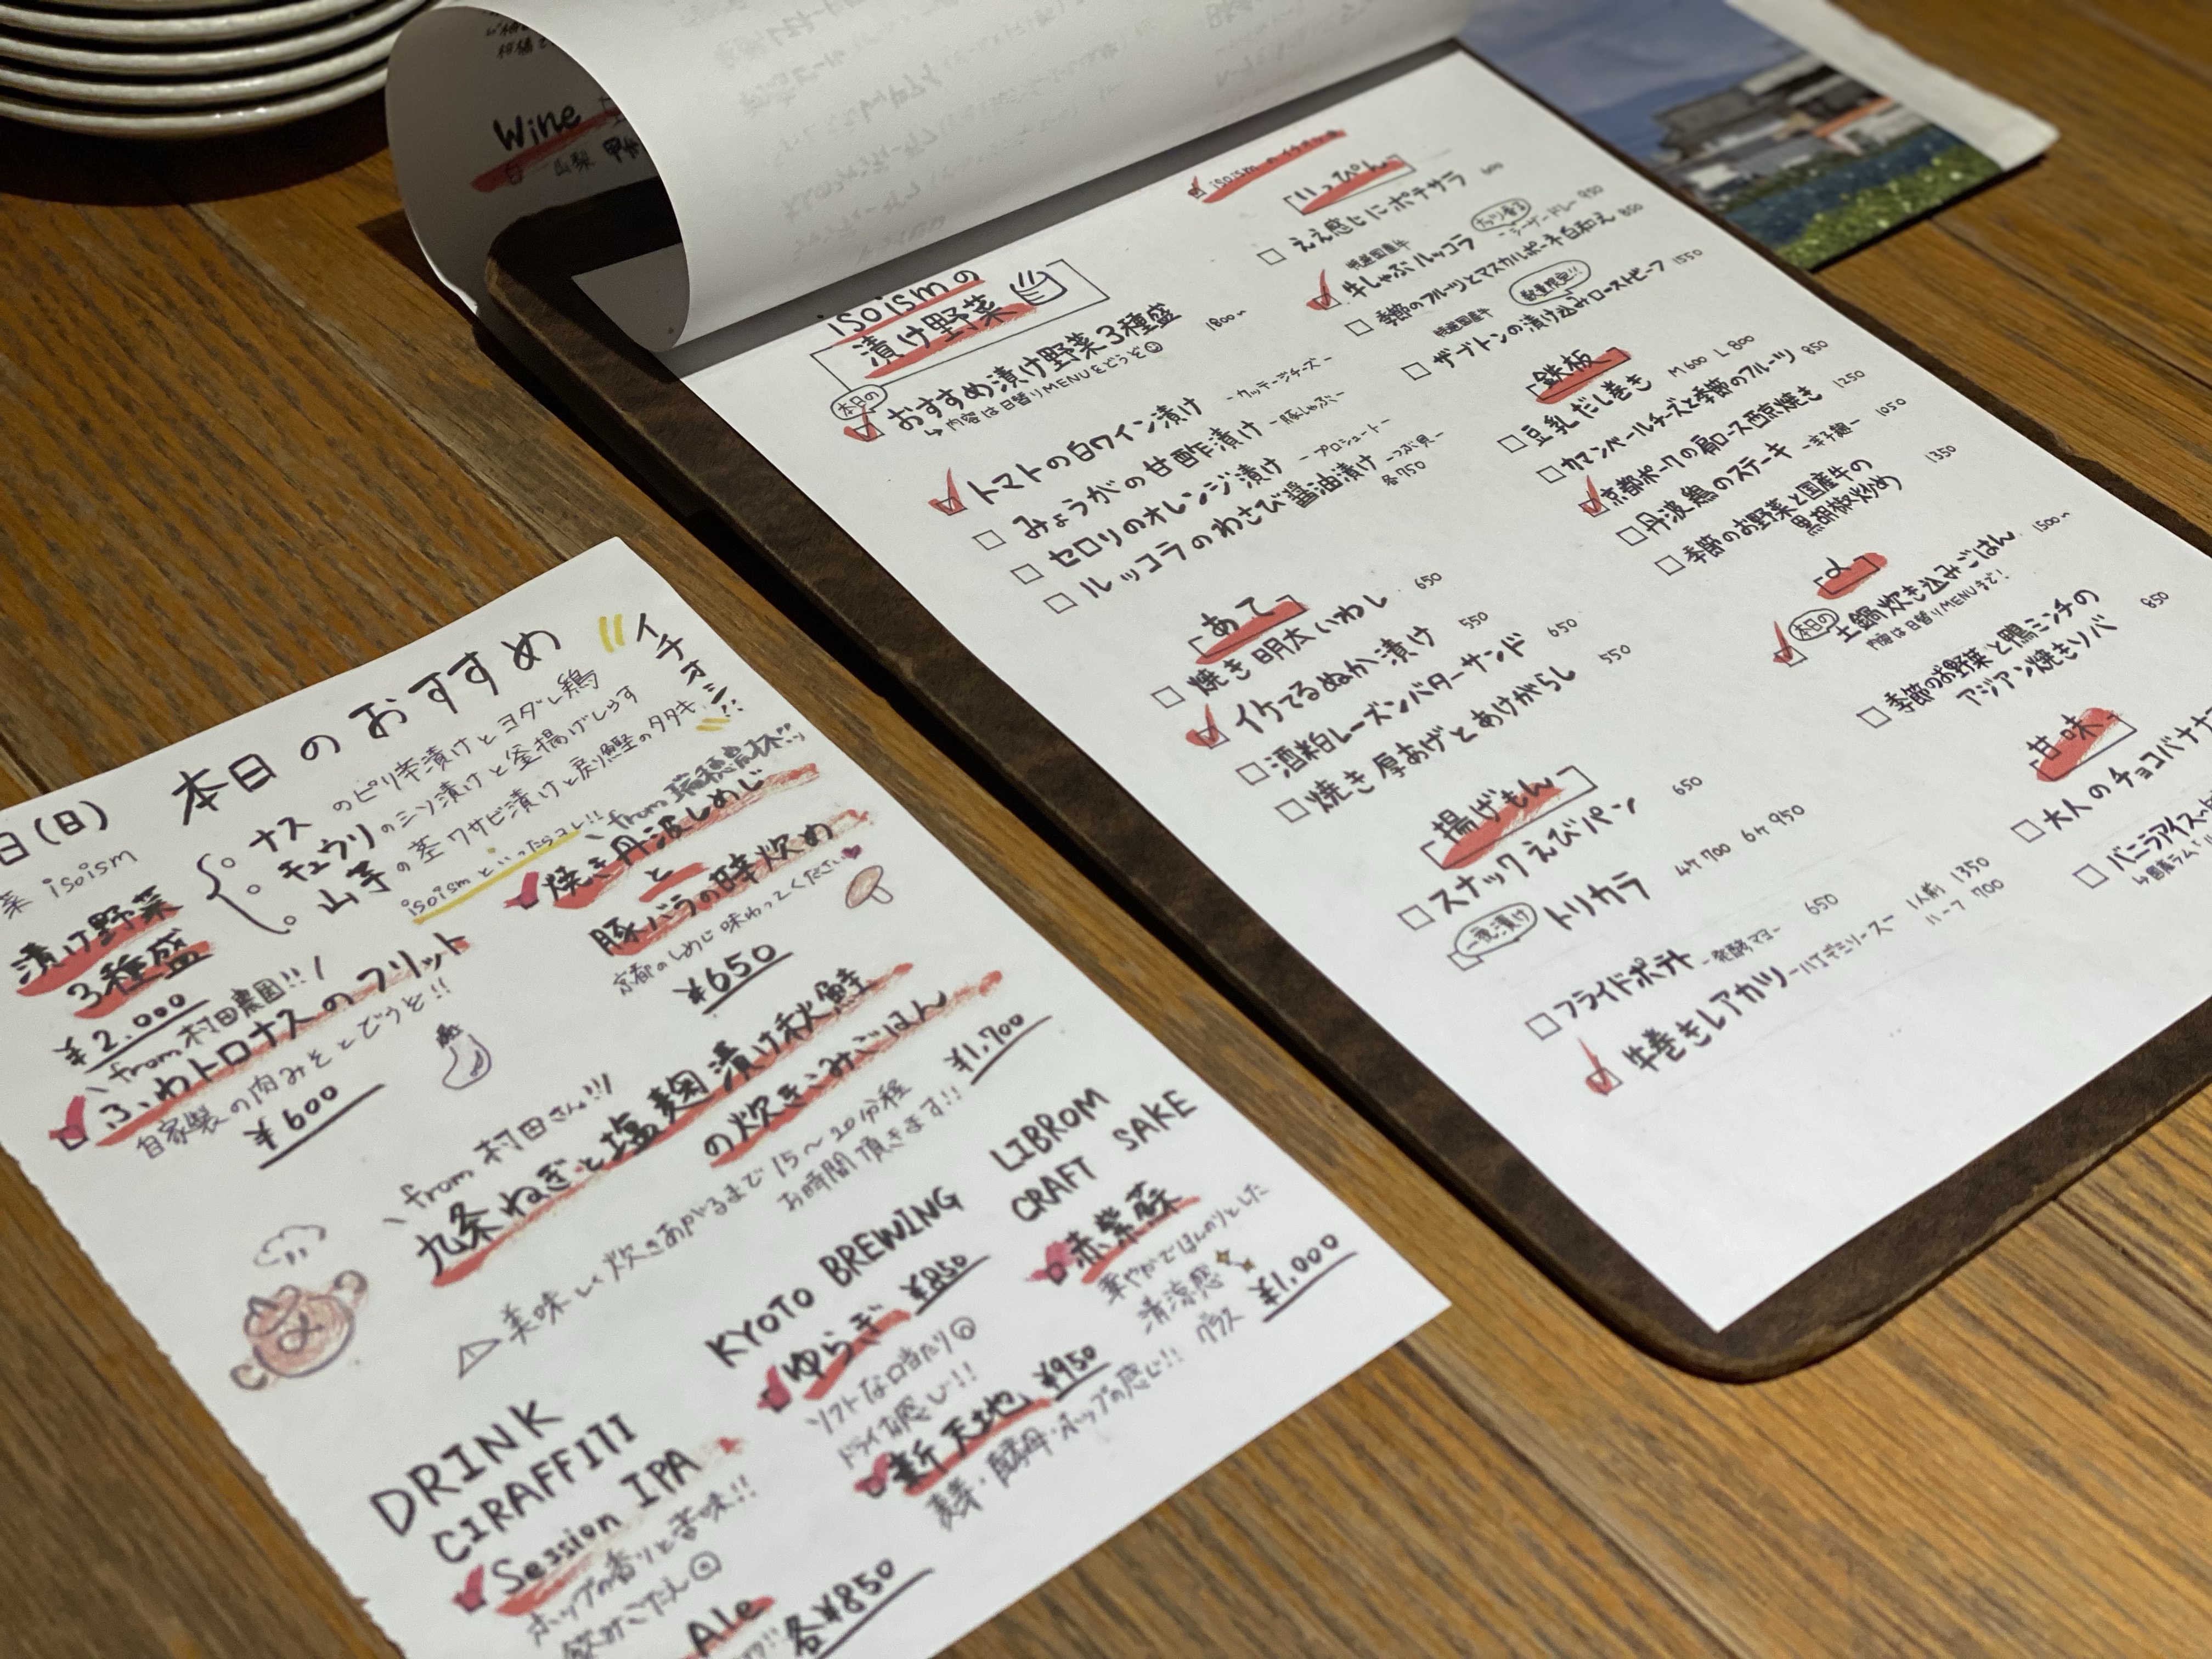 Wine
白 山梨 甲州
isoismの
漬け野菜
本日の
おすすめ漬け野菜3種盛 1800~
↳内容は日替りMENUをどうぞ
トマトの白ワイン漬け -カッテージチーズ-
みょうがの甘酢漬け -豚しゃぶ-
セロリのオレンジ漬け -プロシュート-
ルッコラのわさび醤油漬け -つぶ貝-
各750
あて
焼き明太いわし 650
イケてるぬか漬け 550
酒粕レーズンバターサンド 650
焼き厚あげとあけがらし 550
揚げもん
スナックえびパン 650
一夜漬け
トリカラ 4ケ700 6ケ950
フライドポテト -発酵マヨ- 650
牛巻きレアカツ -ハニデミソース- 1人前 1350
ハーフ 700
isoismのイチオシ
いっぴん
ええ感じにポテサラ 600
特選国産牛
牛しゃぶルッコラ -シーザードレ- 950
季節のフルーツとマスカルポーネ白和え 850
特選国産牛
数量限定!!
ザブトンの漬け込みローストビーフ 1550
鉄板
豆乳だし巻き M600 L800
カマンベールチーズと季節のフルーツ 850
京都ポークの肩ロース西京焼き 1250
丹波鶏のステーキ -辛子麹- 1050
季節のお野菜と国産牛の
黒胡椒炒め 1350
〆
本日の
土鍋炊き込みごはん 1500~
内容は日替りMENUまで!
季節のお野菜と鴨ミンチの
アジアン焼きソバ 850
甘味
大人のチョコバナナ
バニラアイス
日(日) 本日のおすすめ
イチオシ!!
菜 isoism
漬け野菜
3種盛
¥2.000
ナスのピリ辛漬けとヨダレ鶏
キュウリのミソ漬けと釜揚げしらす
山芋の茎ワサビ漬けと戻り鰹のタタキ
isoismといったらコレ!!
from 村田農園!!
ふわトロナスのフリット
自家製の肉みそとどうぞ!!
¥600
from 瑞穂農林!!
焼き丹波しめじ
と
豚バラの旨辛炒め
京都のしめじ味わってください
¥650
from 村田さん!!!
九条ねぎと塩麹漬け秋鮭
の炊きこみごはん
¥1.700
美味しく炊きあがるまで15~20分程
お時間頂きます!!
DRINK
CIRAFFITI
Session IPA
ホップの香りと苦味!!
飲みごたえ
Ale
各¥850
KYOTO BREWING
ゆらぎ ¥850
ソフトな口当たり
ドライな感じ!!
新天地 ¥950
麦芽・酵母・ホップの感じ!!
LIBROM
CRAFT SAKE
赤紫蘇
華やかでほんのりとした
清涼感
グラス ¥1.000